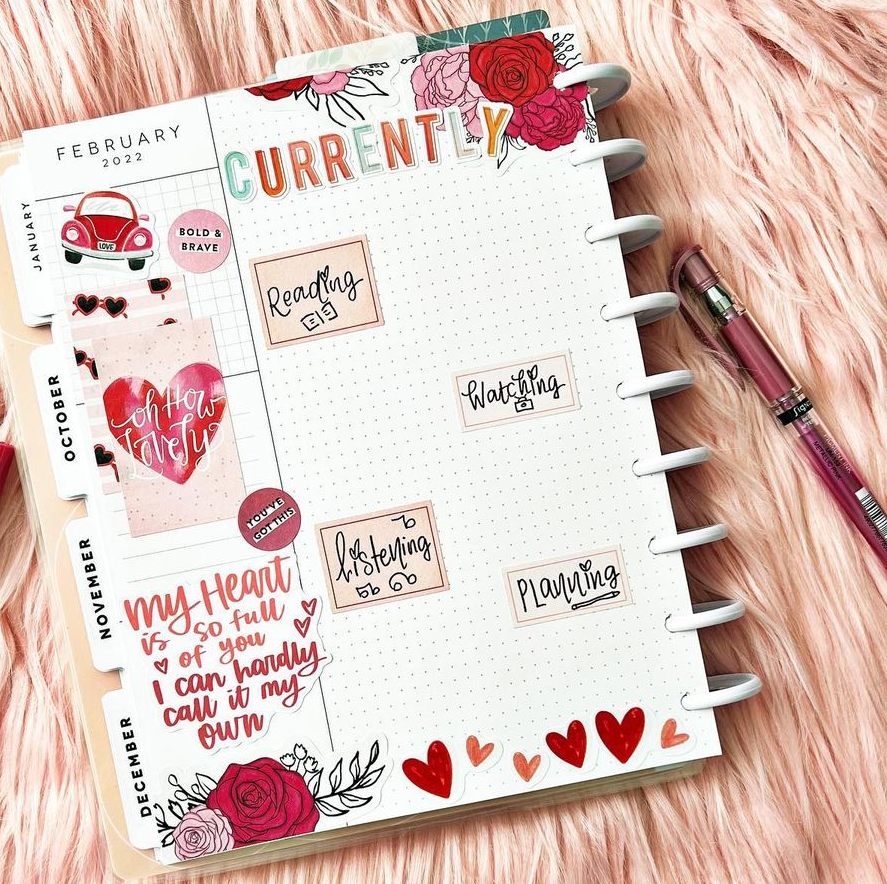 FEBRUARY
2022
CURRENTLY
JANUARY
LOVE
BOLD &
BRAVE
Reading
Watching
OCTOBER
oh How
Lovely
YOU'VE
GOT THIS
listening
PLanning
NOVEMBER
My Heart
is so full
of you
I can hardly
call it my
own
DECEMBER
Signo